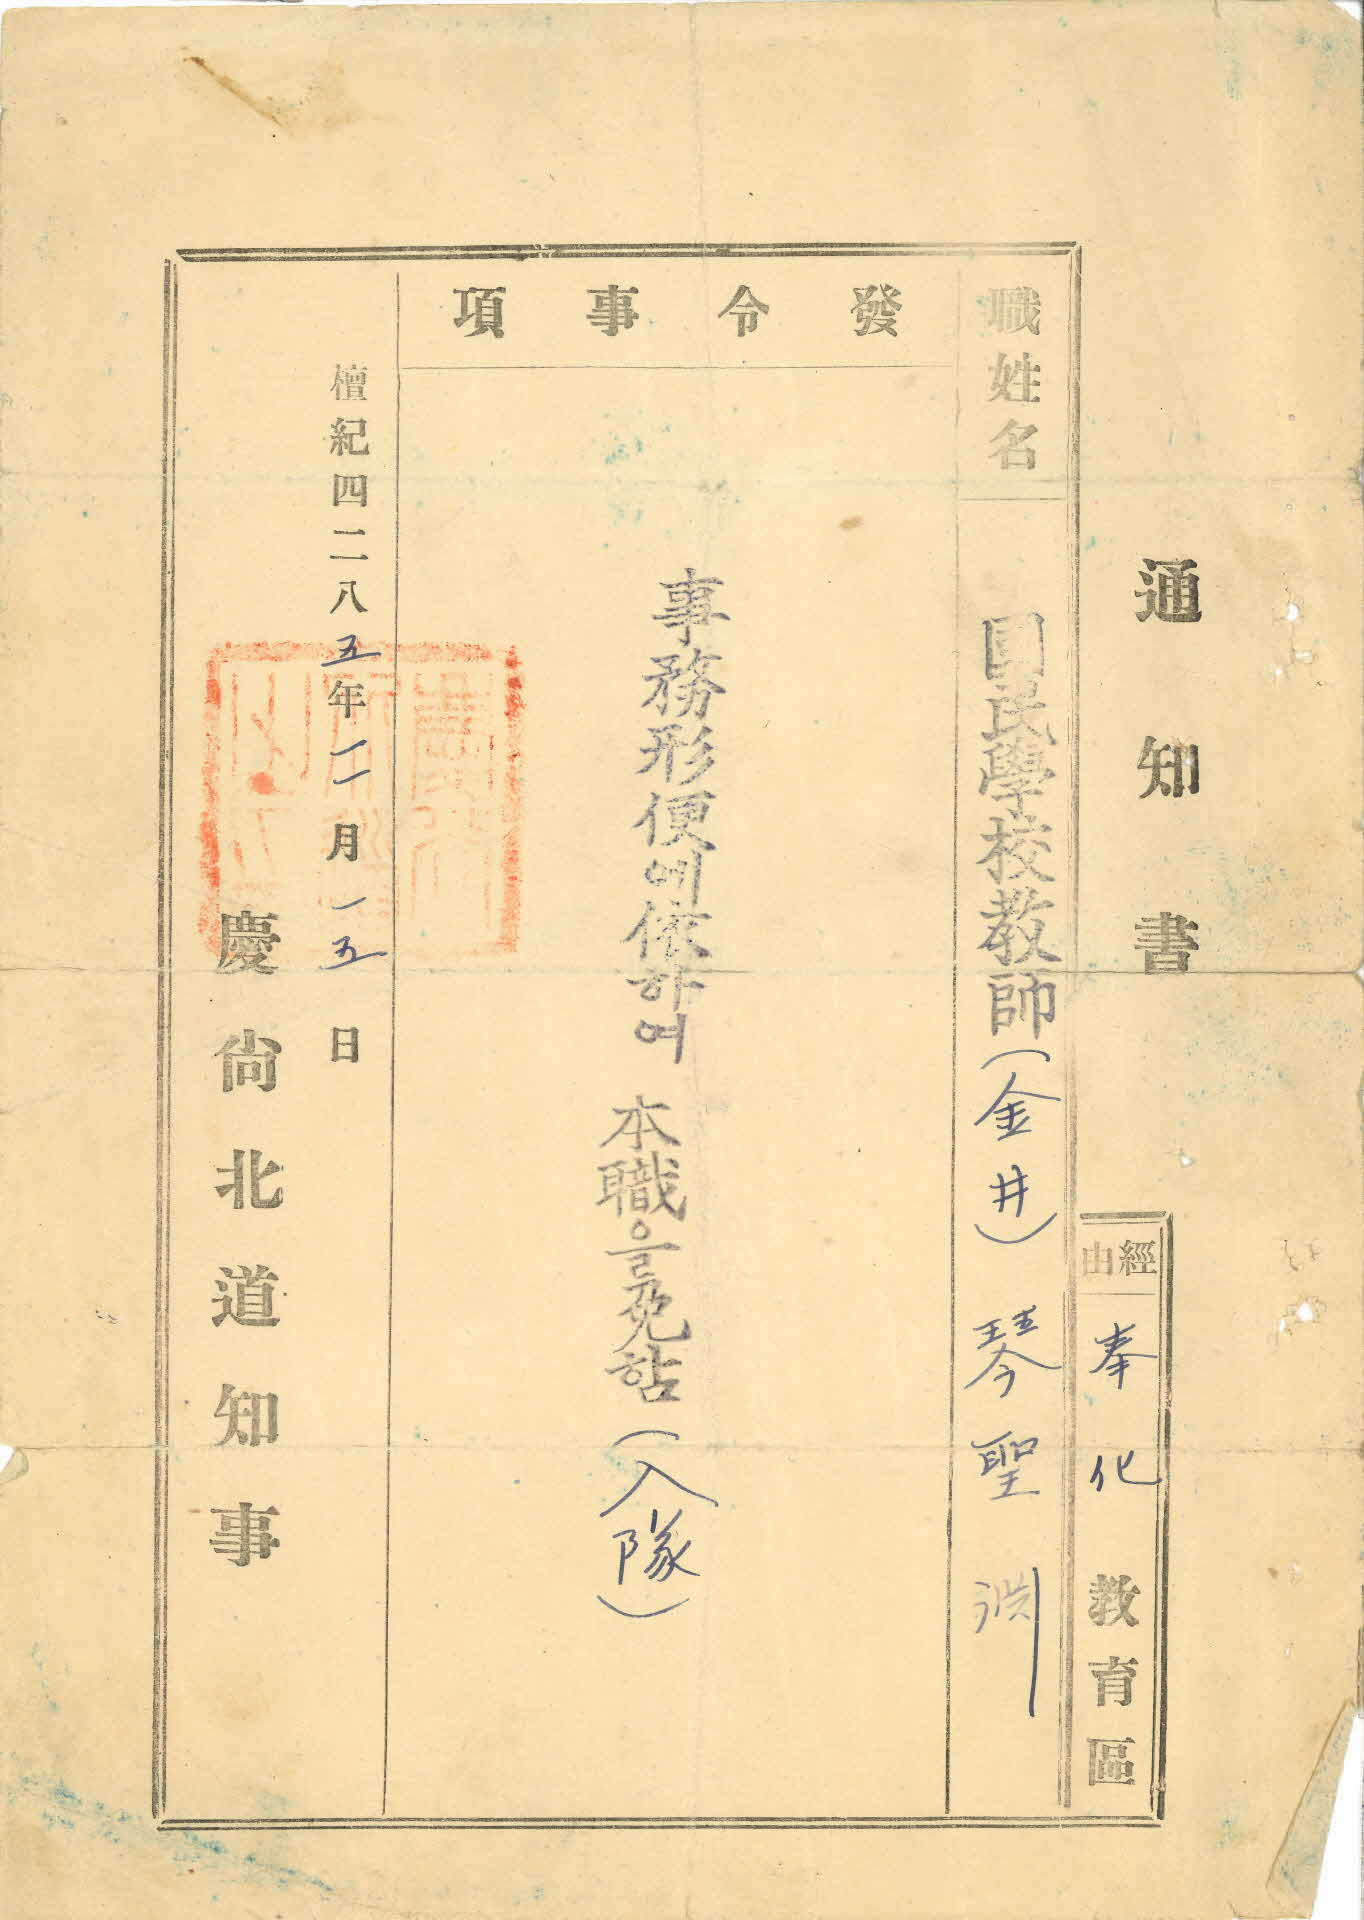 通知書
經由 奉化 教育區
職姓名 國民學校教師(金井) 琴聖淵
發令事項
事務形便에依하여 本職을免함 (入隊)
檀紀四二八五年一一月一五日
慶尙北道知事